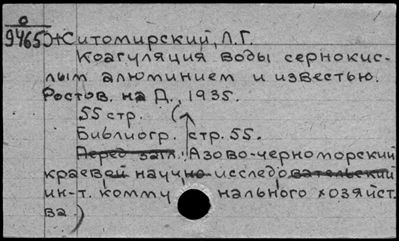 О
9465
Житомирский, Л.Г.
Коагуляция воды сернокис-
лым алюминием и известью.
Ростов. на Д., 1935.
55 стр. (
Библиогр. стр. 55.
Перед загл. Азово-черноморский
краевой научно-исследовательский
ин-т. комму нального хозяйст.
ва.)